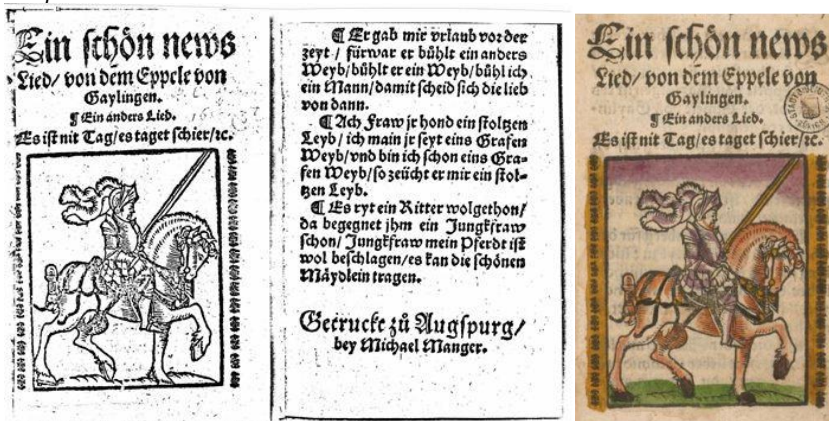 Ein schön news
Lied/ von dem Eppele von
Gaylingen.
¶ Ein anders Lied.
Es ist nit Tag/es taget schier/ꝛc.
¶ Er gab mir vrlaub vor der
zeyt / fürwar er bühlt ein anders
Weyb/bühlt er ein Weyb/bühl ich
ein Mann/damit scheid sich die lieb
von dann.
¶ Ach Fraw jr hond ein stoltzen
Leyb / ich main jr seyt eins Grafen
Weyb/vnd bin ich schon eins Gra-
fen Weyb/so zeücht er mir ein stol-
tzen Leyb.
¶ Es ryt ein Ritter wolgethon/
da begegnet jhm ein Jungkfraw
schon/ Jungkfraw mein Pferdt ist
wol beschlagen/es kan die schönen
Mäydlein tragen.
Getruckt zů Augspurg/
bey Michael Manger.
Ein schön news
Lied/ von dem Eppele von
Gaylingen.
¶ Ein anders Lied.
Es ist nit Tag/es taget schier/ꝛc.